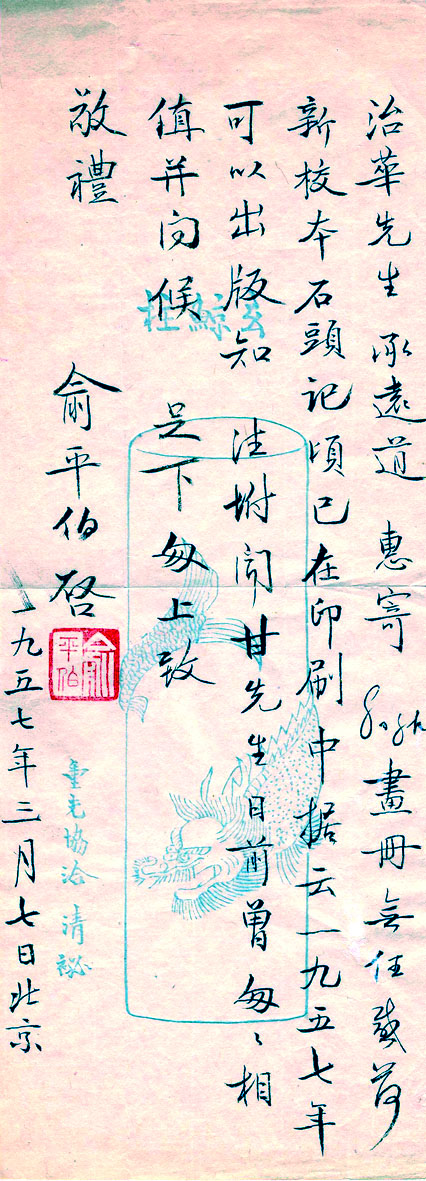 治華先生 承遠道 惠寄 畫冊無任感荷
新校本石頭記頃已在印刷中据云一九五七年
可以出版知 注坿聞甘先生日前曾匆〻相
值并问候 足下匆上致
敬禮
俞平伯啓
一九五七年三月七日北京
俞平伯
玄鯨柱
重光協洽 清祕